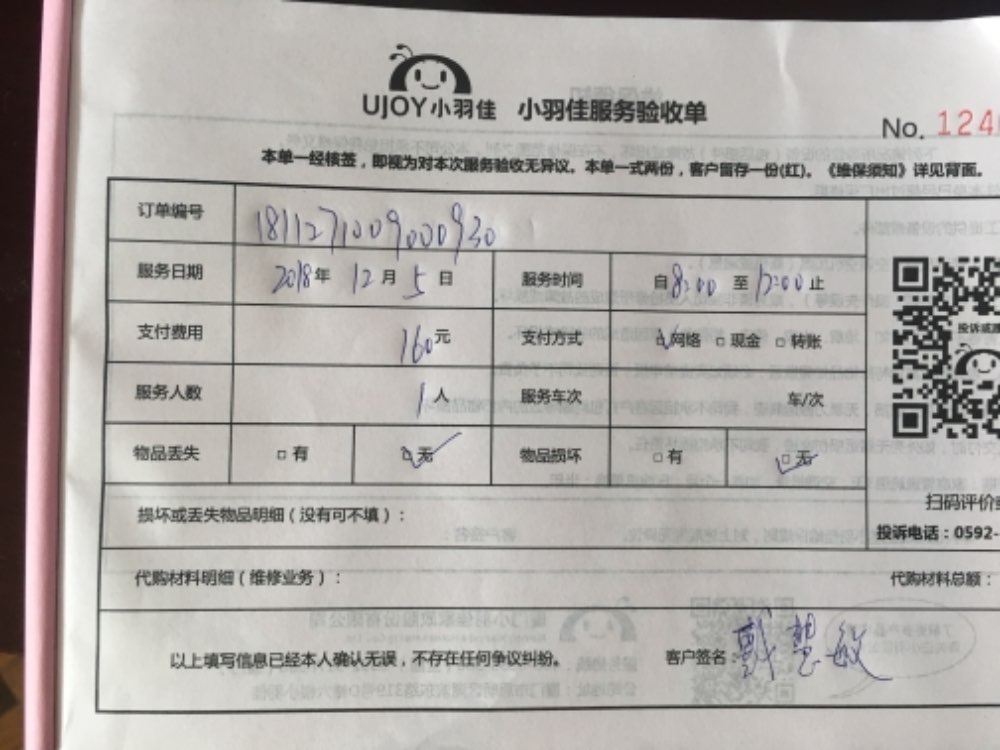 UJOY小羽佳 小羽佳服务验收单
No. 124
本单一经核签，即视为对本次服务验收无异议。本单一式两份，客户留存一份(红)。《维保须知》详见背面。
订单编号 1811271009000930
服务日期 2018年 12月 5日 服务时间 自8:00 至12:00止
支付费用 160元 支付方式 网络 □现金 □转账
服务人数 1人 服务车次 车/次
投诉或
物品丢失 □有 □无 物品损坏 □有 □无
扫码评价或
损坏或丢失物品明细（没有可不填）：
投诉电话：0592-
代购材料明细（维修业务）： 代购材料总额：
以上填写信息已经本人确认无误，不存在任何争议纠纷。 客户签名：戴慧敏